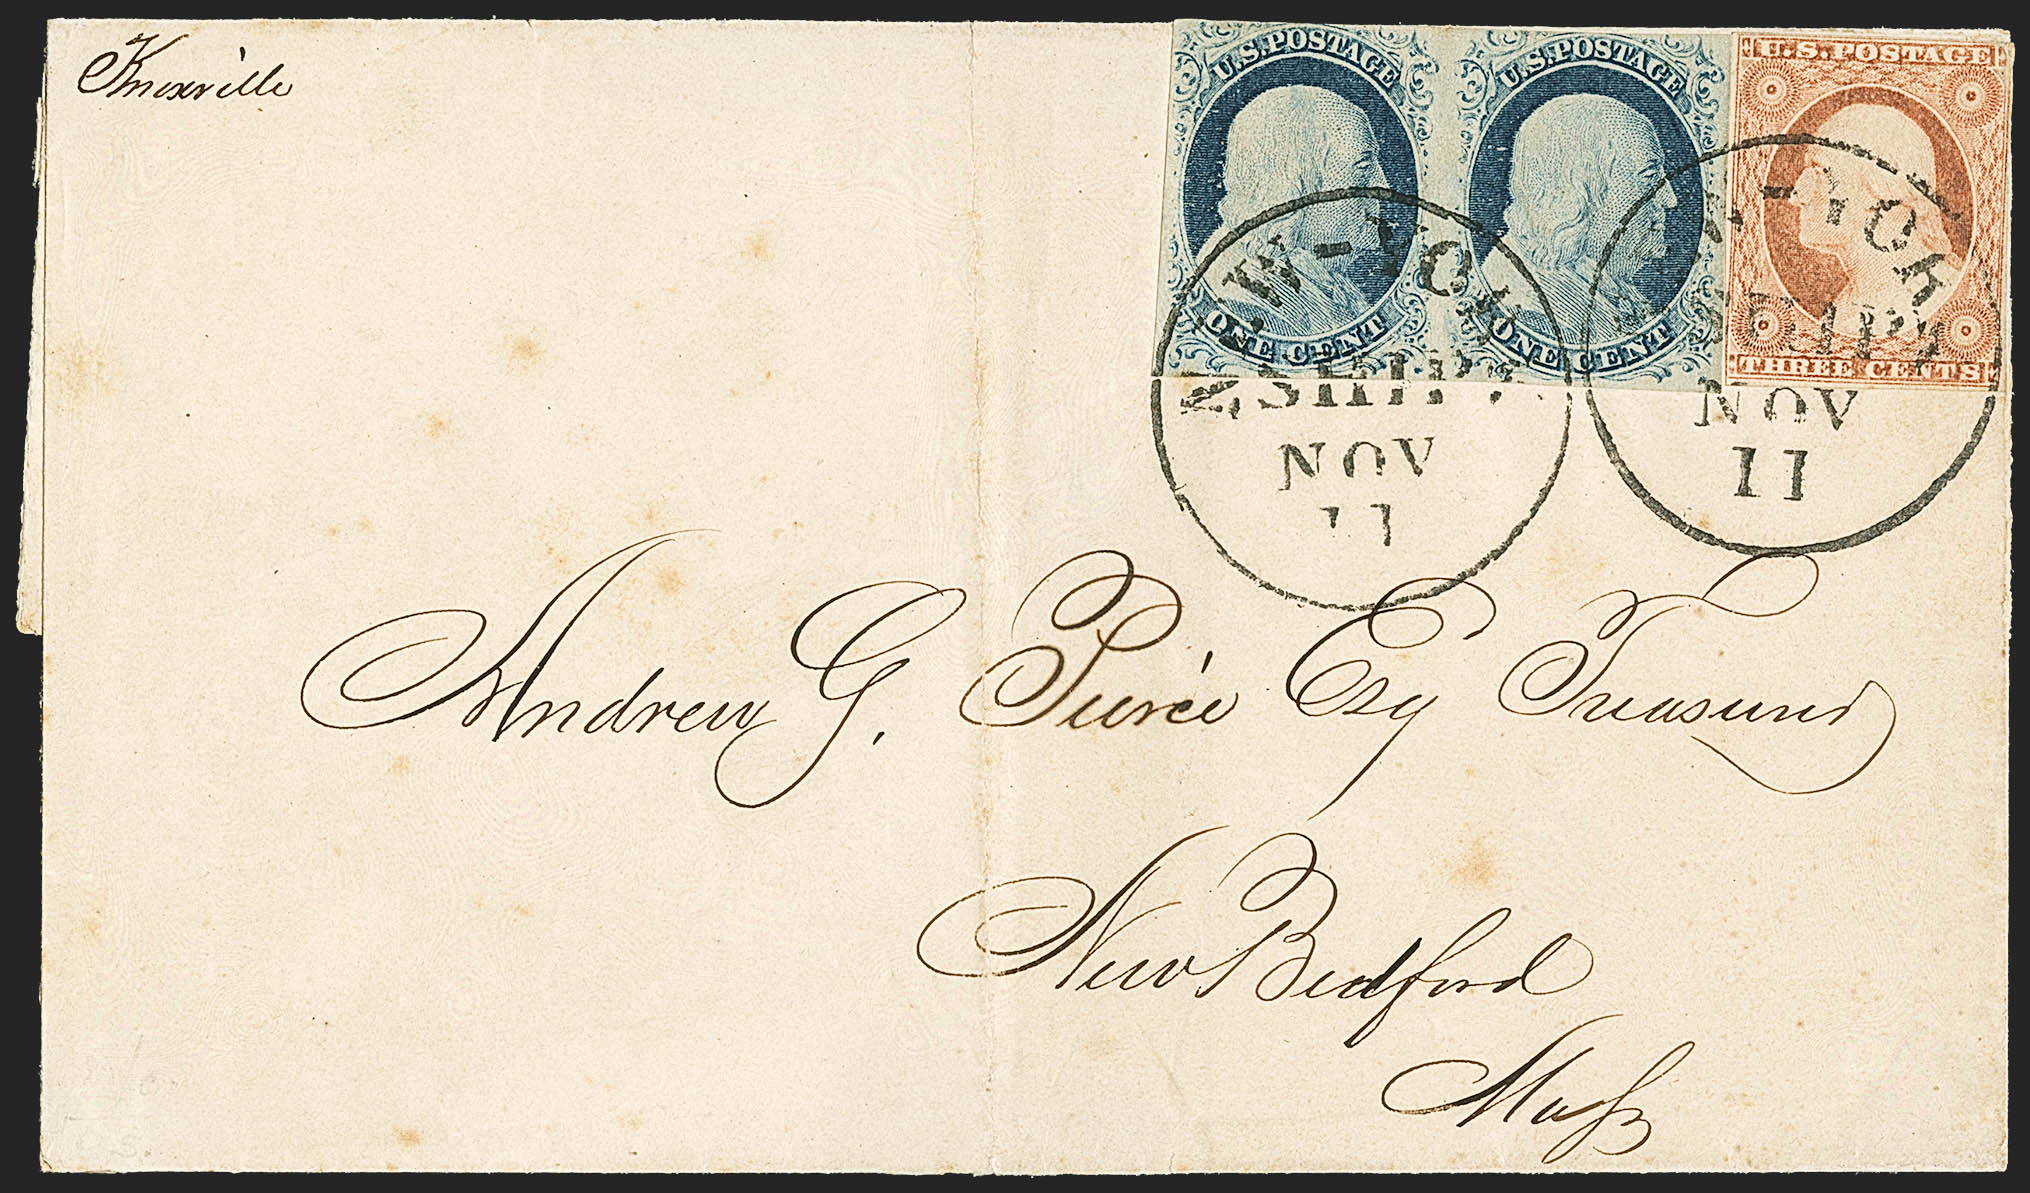 Knoxville
U.S. POSTAGE
ONE CENT
U.S. POSTAGE
ONE CENT
U.S. POSTAGE
THREE CENTS
W-YOR
SHIP
NOV
11
YOR
SHIP
NOV
11
Andrew G. Peirce Esq Treasurer
New Bedford
Mass